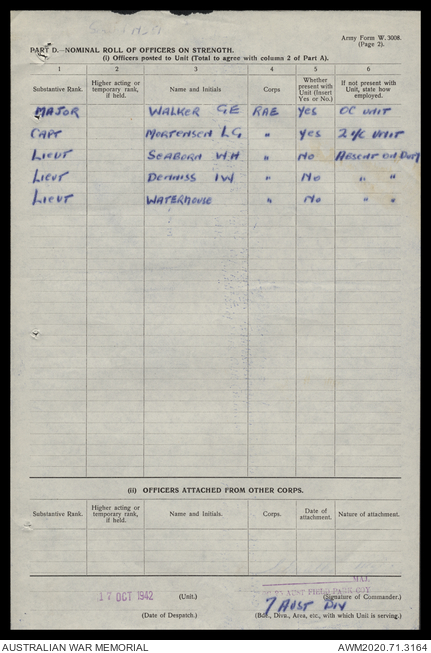 Army Form W. 3008.
(Page 2).
PART D.—NOMINAL ROLL OF OFFICERS ON STRENGTH.
(i) Officers posted to Unit (Total to agree with column 2 of Part A).
1 2 3 4 5 6
Substantive Rank. Higher acting or temporary rank, if held. Name and Initials Corps Whether present with Unit (Insert Yes or No.) If not present with Unit, state how employed.
MAJOR WALKER GE RAE YES OC UNIT
CAPT MORTENSEN LG " YES 2 I/C UNIT
LIEUT SEABORN WH " NO ABSENT ON DUTY
LIEUT DENNISS IW " NO " "
LIEUT WATERHOUSE " NO " "
(ii) OFFICERS ATTACHED FROM OTHER CORPS.
Substantive Rank. Higher acting or temporary rank, if held. Name and Initials. Corps. Date of attachment. Nature of attachment.
MAJ.
17 OCT 1942 (Unit.) AUST FIELD PARK COY (Signature of Commander.)
7 AUST DIV
(Date of Despatch.) (Bde., Divn., Area, etc., with which Unit is serving.)
AUSTRALIAN WAR MEMORIAL AWM2020.71.3164